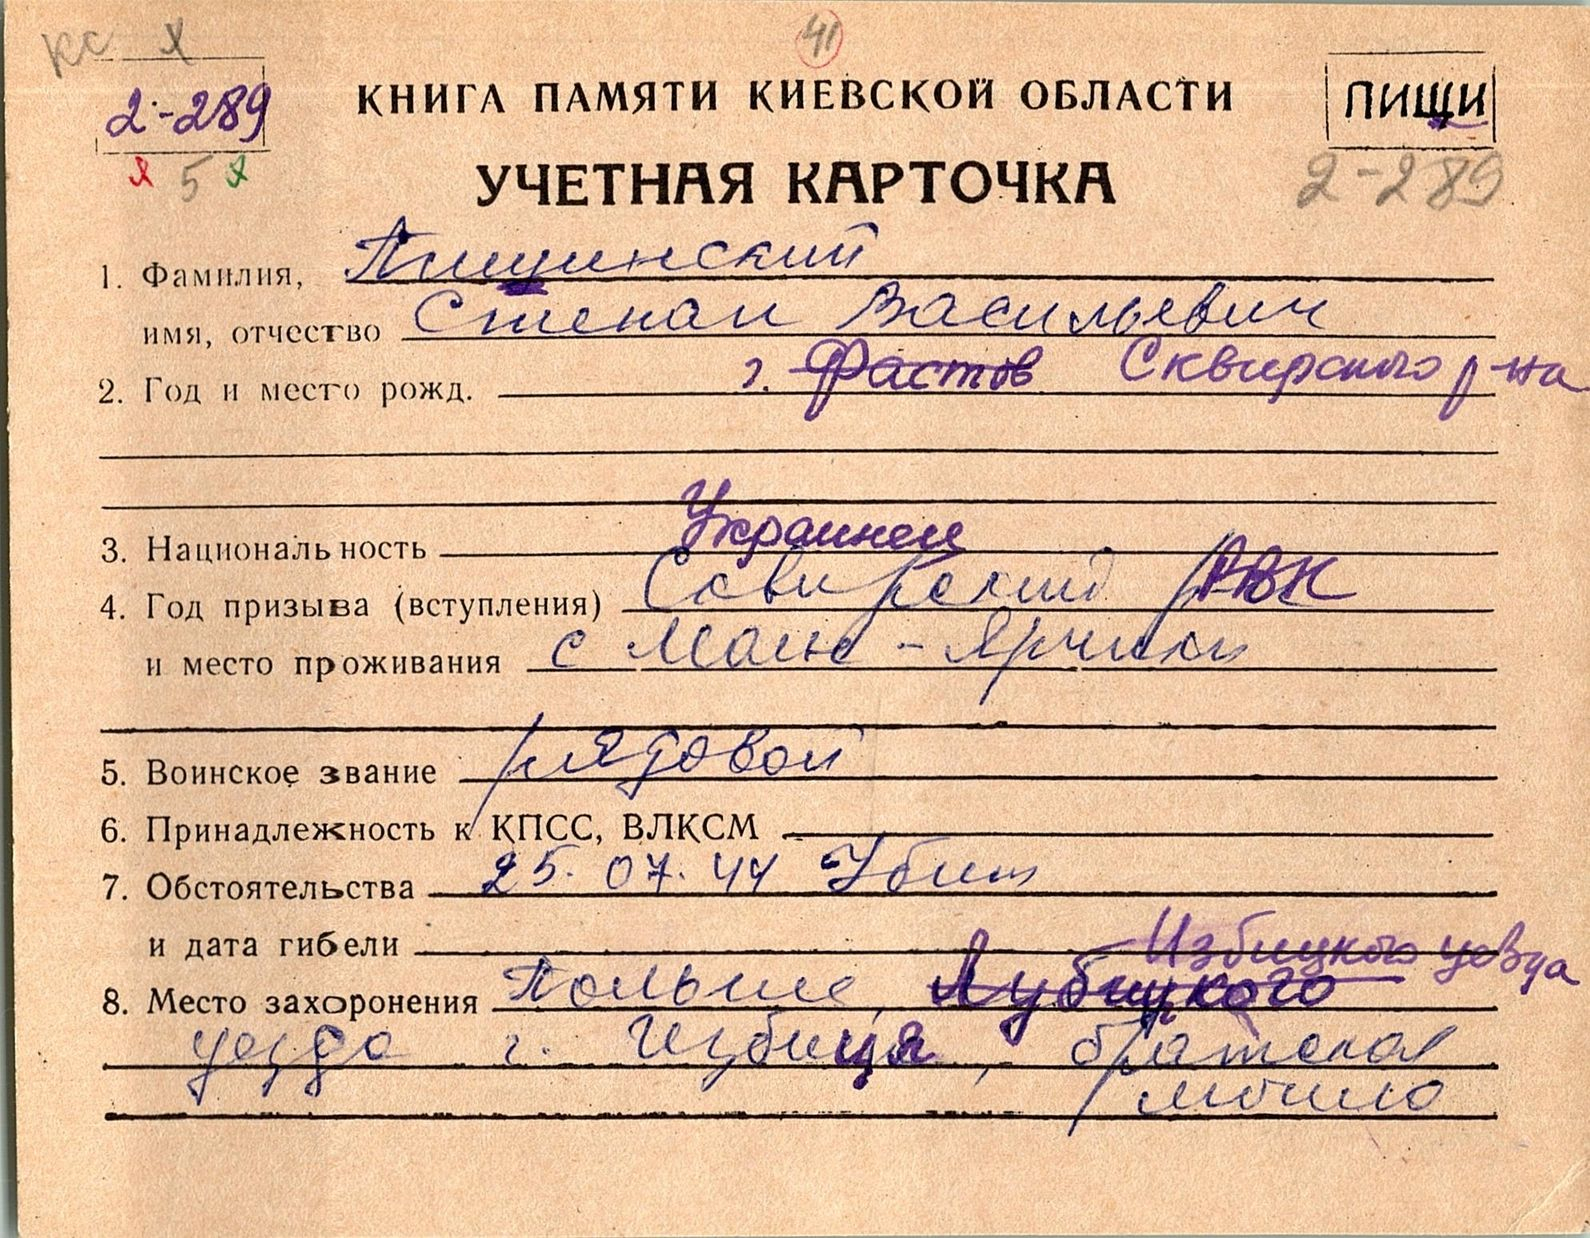 кс х
41
2-289
КНИГА ПАМЯТИ КИЕВСКОЙ ОБЛАСТИ
ПИЩИ
х 5 х
УЧЕТНАЯ КАРТОЧКА
2-289
1. Фамилия, Пищинский
имя, отчество Степан Васильевич
2. Год и место рожд. г. Фастов Сквирского р-на
3. Национальность Украинец
4. Год призыва (вступления) Сквирский РВК
и место проживания с Мал - Ярчики
5. Воинское звание рядовой
6. Принадлежность к КПСС, ВЛКСМ
7. Обстоятельства 25.07.44 Убит
и дата гибели Избицкого уезда
8. Место захоронения Польша, Лубицкого
уезда г. Избица, братская
могила